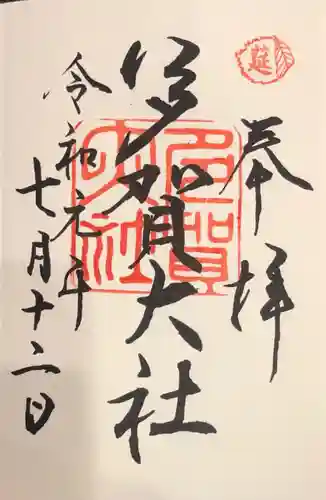 延
奉拝
多賀大社
多賀大社
令和元年
七月十二日